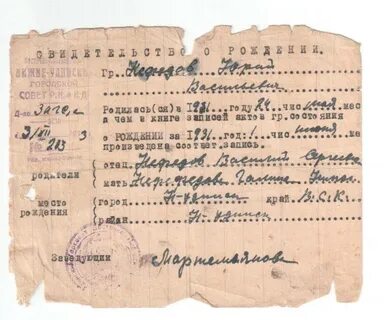 СВИДЕТЕЛЬСТВО О РОЖДЕНИИ.
НИЖНЕ-УДИНСК
ГОРОДСКОЙ
СОВЕТ Р.К. и К.Д.
Гр. Нефедов Юрий
Васильевич
Родилась(ся) в 1931 году 24 чис. мая мес
Загс
а чем в книге записей актов гр. состояния
3/VII 3
о РОЖДЕНИИ за 1931 год: 1 чис. июня ме
№ 283
произведена соответ. запись.
родители
отец Нефедов Василий
мать Нефедова Галина
место
рождения
город Н-удинск край В.С.К.
район Н-удинск
Заведующий Мартемьянова